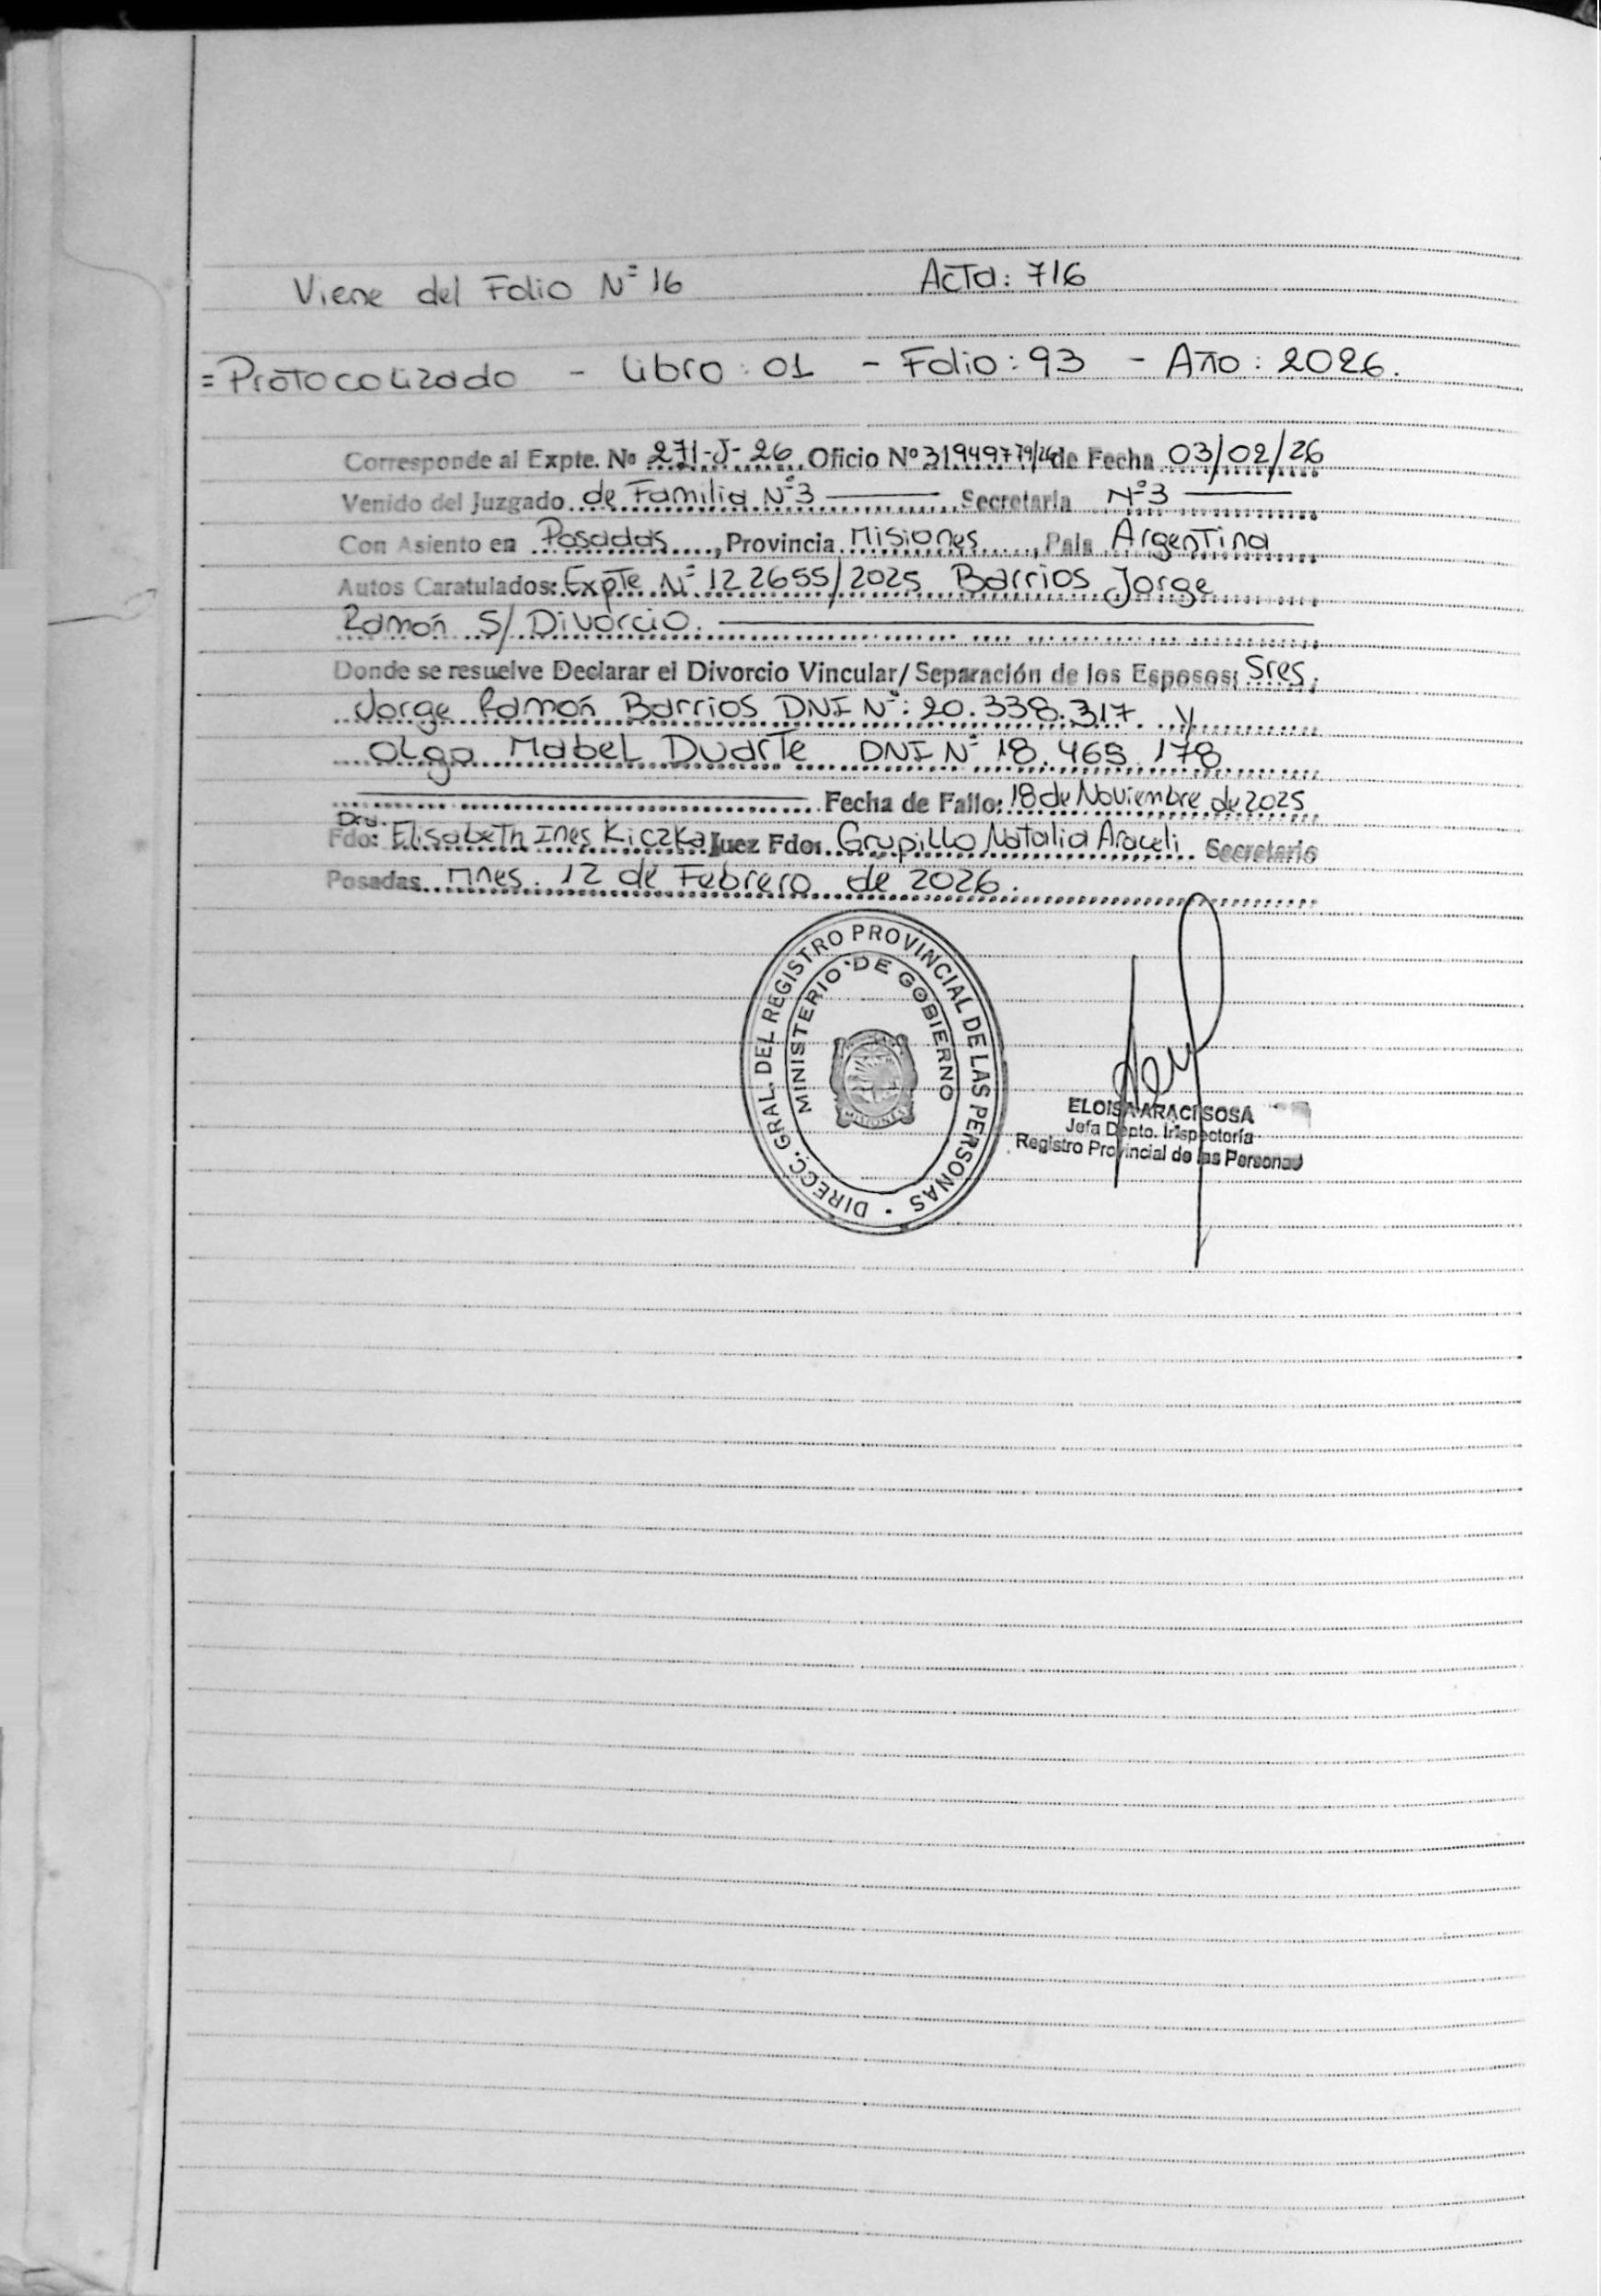 Viene del Folio Nº 16 Acta: 716
=Protocolizado - Libro: 01 - Folio: 93 - Año: 2026.
Corresponde al Expte. Nº 271-J-26 Oficio Nº 31949779/26 de Fecha 03/02/26
Venido del Juzgado de Familia Nº3 Secretaria Nº3
Con Asiento en Posadas, Provincia Misiones, Pais Argentina
Autos Caratulados: Expte Nº 122655/2025 Barrios Jorge
Ramón S/ Divorcio.
Donde se resuelve Declarar el Divorcio Vincular/ Separación de los Esposos: Sres.
Jorge Ramón Barrios DNI Nº: 20.338.317. y
Olga Mabel Duarte DNI Nº 18.465.178
Fecha de Fallo: 18 de Noviembre de 2025
Dra.
Fdo: Elisabeth Ines Kiczka Juez Fdo: Grupillo Natalia Araceli Secretario
Posadas Mnes. 12 de Febrero de 2026.
DIRECC. GRAL. DEL REGISTRO PROVINCIAL DE LAS PERSONAS
MINISTERIO DE GOBIERNO
MISIONES
ELOISA ARACI SOSA
Jefa Depto. Inspectoría
Registro Provincial de las Personas